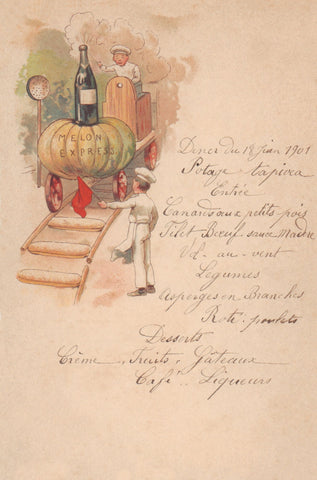 MELON
EXPRESS
Diner du 18 juin 1901
Potage - tapioca
Entrée
Canards aux petits pois
Filet Bœuf sauce Madère
Vol - au - vent
Légumes
Asperges en Branches
Roti: poulets
Desserts
Crème .. Fruits .. Gâteaux
Café .. Liqueurs